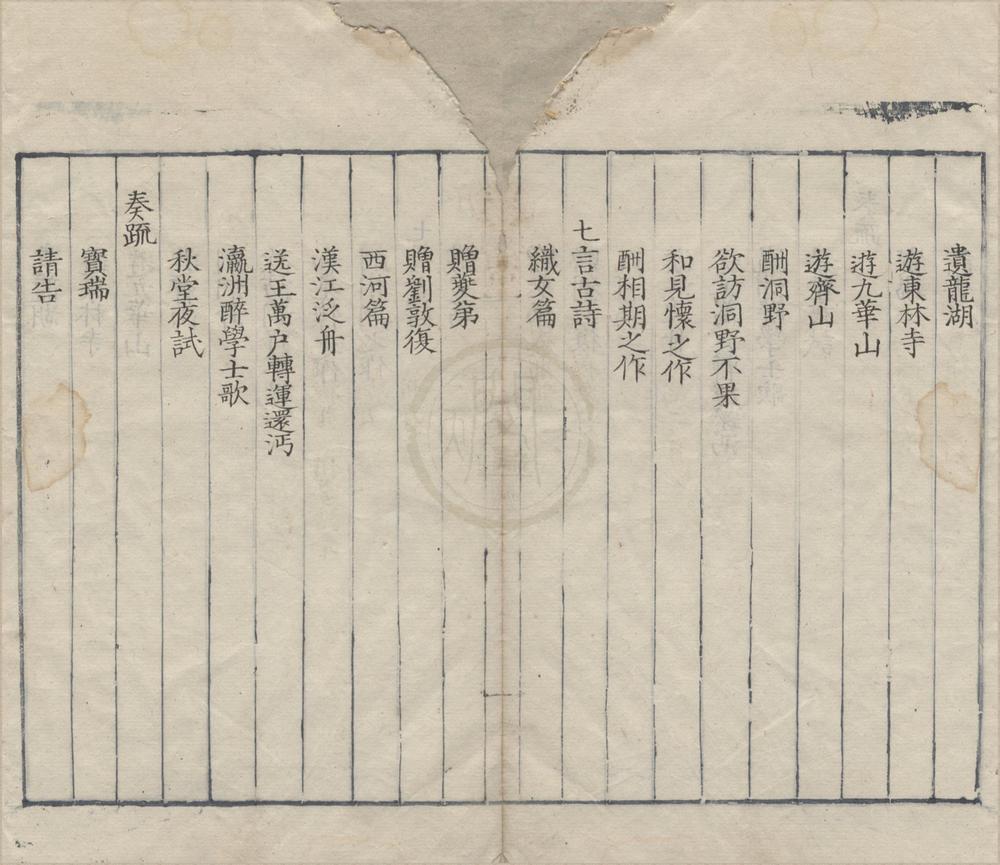 遺龍湖
遊東林寺
逰九華山
遊齊山
酬洞野
欲訪洞野不果
和見懷之作
酬相期之作
七言古詩
織女篇
贈爽弟
贈劉敦復
西河篇
漢江泛舟
送王萬户轉運還沔
瀛洲醉學士歌
秋堂夜試
奏䟽
寶瑞
請告